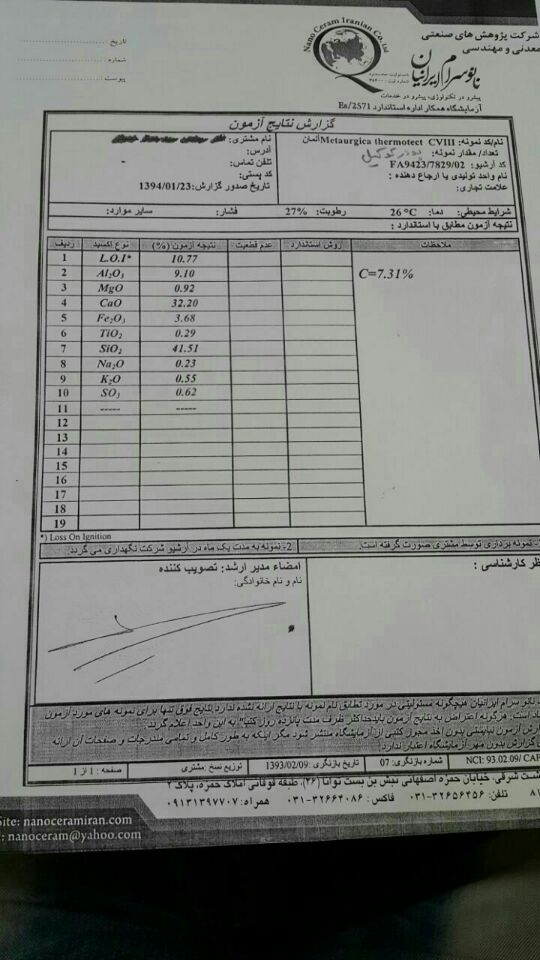 Nano Ceram Iranian Co. Ltd
شرکت پژوهش های صنعتی
معدنی و مهندسی
نانوسرام ایرانیان
پیشرو در تکنولوژی، پیشرو در خدمات
آزمایشگاه همکار اداره استاندارد Es/2571
تاریخ :
شماره :
پیوست :
گزارش نتایج آزمون
نام/کد نمونه: Metaurgica thermotect CVIII آلمان
نام مشتری:
تعداد/ مقدار نمونه:
آدرس:
کد آرشیو: FA9423/7829/02
تلفن تماس:
نام واحد تولیدی یا ارجاع دهنده :
کد پستی:
علامت تجاری:
تاریخ صدور گزارش: 1394/01/23
شرایط محیطی: دما: 26 °C رطوبت: 27% فشار: سایر موارد:
نتیجه آزمون مطابق با استاندارد :
ردیف نوع اکسید نتیجه آزمون (%) عدم قطعیت روش استاندارد ملاحظات
1 L.O.I* 10.77
2 Al₂O₃ 9.10 C=7.31%
3 MgO 0.92
4 CaO 32.20
5 Fe₂O₃ 3.68
6 TiO₂ 0.29
7 SiO₂ 41.51
8 Na₂O 0.23
9 K₂O 0.55
10 SO₃ 0.62
11 ----- -----
12
13
14
15
16
17
18
19
*) Loss On Ignition
نمونه برداری توسط مشتری صورت گرفته است. 2- نمونه به مدت یک ماه در آرشیو شرکت نگهداری می گردد.
نظر کارشناسی :
امضاء مدیر ارشد: تصویب کننده
نام و نام خانوادگی:
نانو سرام ایرانیان هیچگونه مسئولیتی در مورد تطابق نام نمونه با نتایج ارائه شده ندارد نتایج فوق تنها برای نمونه های مورد آزمون
است. هرگونه اعتراض به نتایج آزمون بایدحداکثر ظرف مدت پانزده روز کتبا" به این واحد اعلام گردد.
آزمون نبایستی بدون اخذ مجوز کتبی از آزمایشگاه منتشر شود مگر اینکه به طور کامل و تمامی مندرجات و صفحات آن ارائه
گزارش بدون مهر آزمایشگاه اعتبار ندارد.
NCI: 93.02.09/ شماره بازنگری: 07 تاریخ بازنگری: 1393/02/09 توزیع نسخ: مشتری صفحه : 1 از 1
شرقی، خیابان حمزه اصفهانی نبش بن بست توانا (۲۶)، طبقه فوقانی املاک حمزه، پلاک ۲
تلفن: ۳۲۶۵۶۴۵۶-۰۳۱ فاکس : ۳۲۶۶۴۰۸۶-۰۳۱ همراه: ۰۹۱۳۱۳۹۷۷۰۷
Site: nanoceramiran.com
: nanoceram@yahoo.com